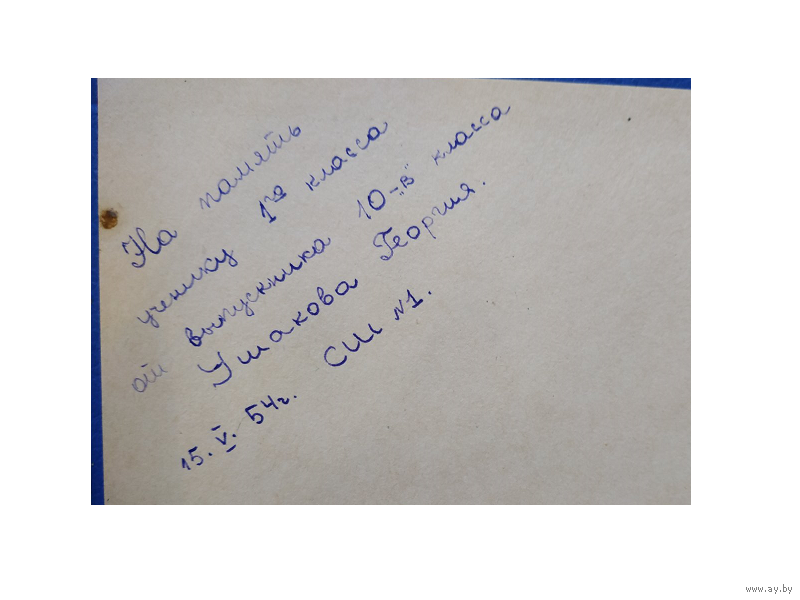 На память
ученику 1го класса
от выпускника 10-„в" класса
Ушакова Георгия.
15.V.54г. СШ №1.
www.ay.by